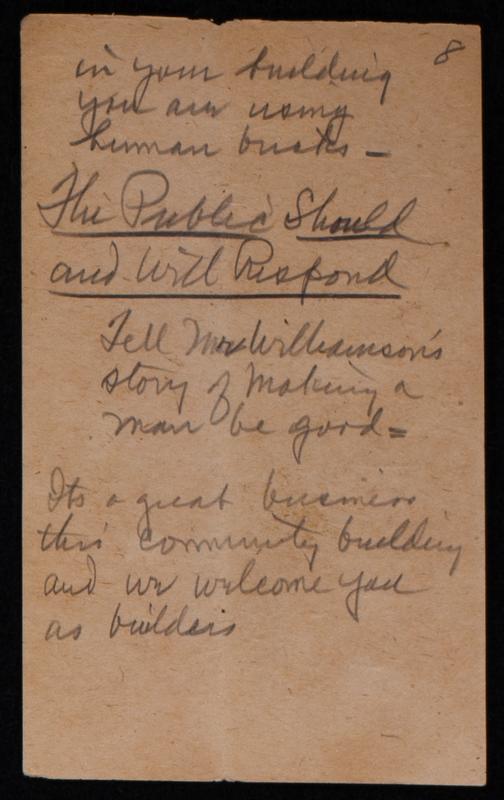 8
in your building
you are using
human bricks —
The Public Should
and Will Respond
Tell Mr Williamson's
story of making a
man be good =
Its a great business
this community building
and we welcome you
as builders